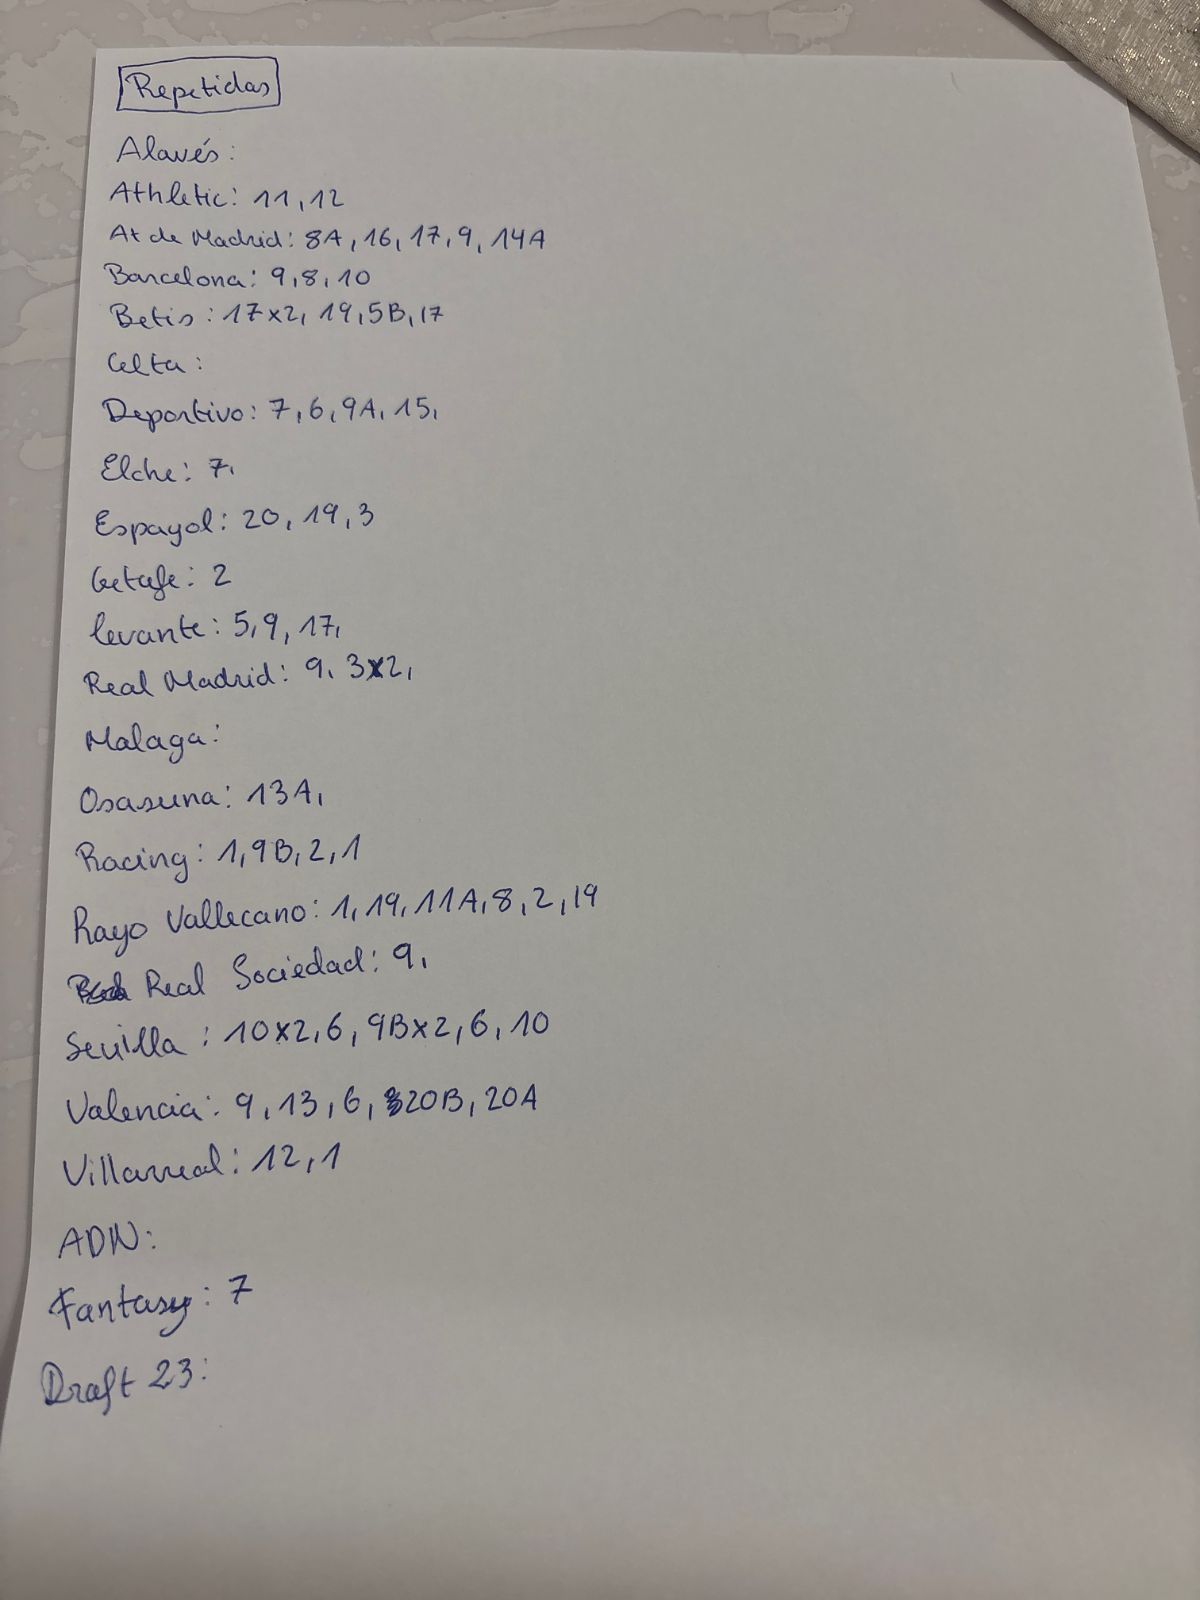 Repetidas
Alavés:
Athletic: 11, 12
At de Madrid: 8A, 16, 17, 9, 14A
Barcelona: 9, 8, 10
Betis: 17x2, 19, 5B, 17
Celta:
Deportivo: 7, 6, 9A, 15,
Elche: 7,
Espayol: 20, 19, 3
Getafe: 2
Levante: 5, 9, 17,
Real Madrid: 9, 3x2,
Malaga:
Osasuna: 13A,
Racing: 1, 9B, 2, 1
Rayo Vallecano: 1, 19, 11A, 8, 2, 19
Real Sociedad: 9,
Sevilla: 10x2, 6, 9Bx2, 6, 10
Valencia: 9, 13, 6, 20B, 20A
Villarreal: 12, 1
ADN:
Fantasy: 7
Draft 23: